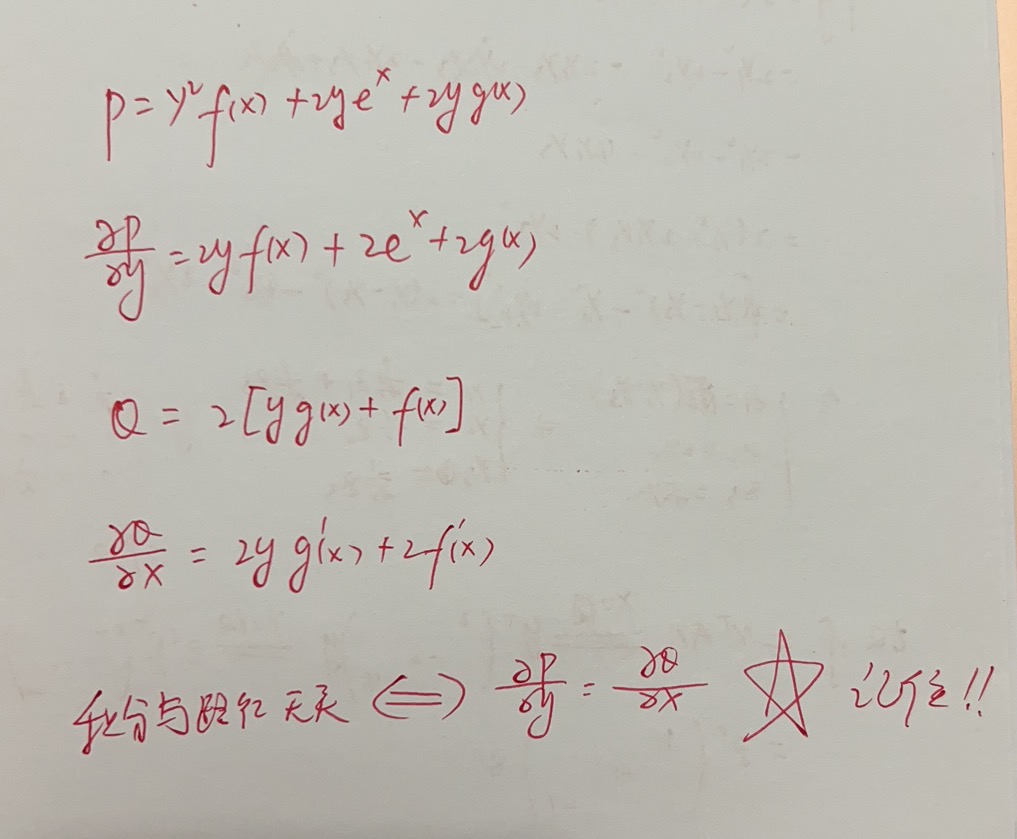 P = y² f(x) + 2y eˣ + 2y g(x)
∂P/∂y = 2y f(x) + 2eˣ + 2g(x)
Q = 2[y g(x) + f(x)]
∂Q/∂x = 2y g'(x) + 2f'(x)
积分与路径无关 ⟺ ∂P/∂y = ∂Q/∂x ☆ 记住!!